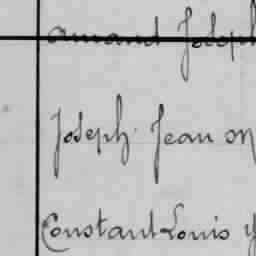 amand Joseph
Joseph Jean m
Constant Louis y